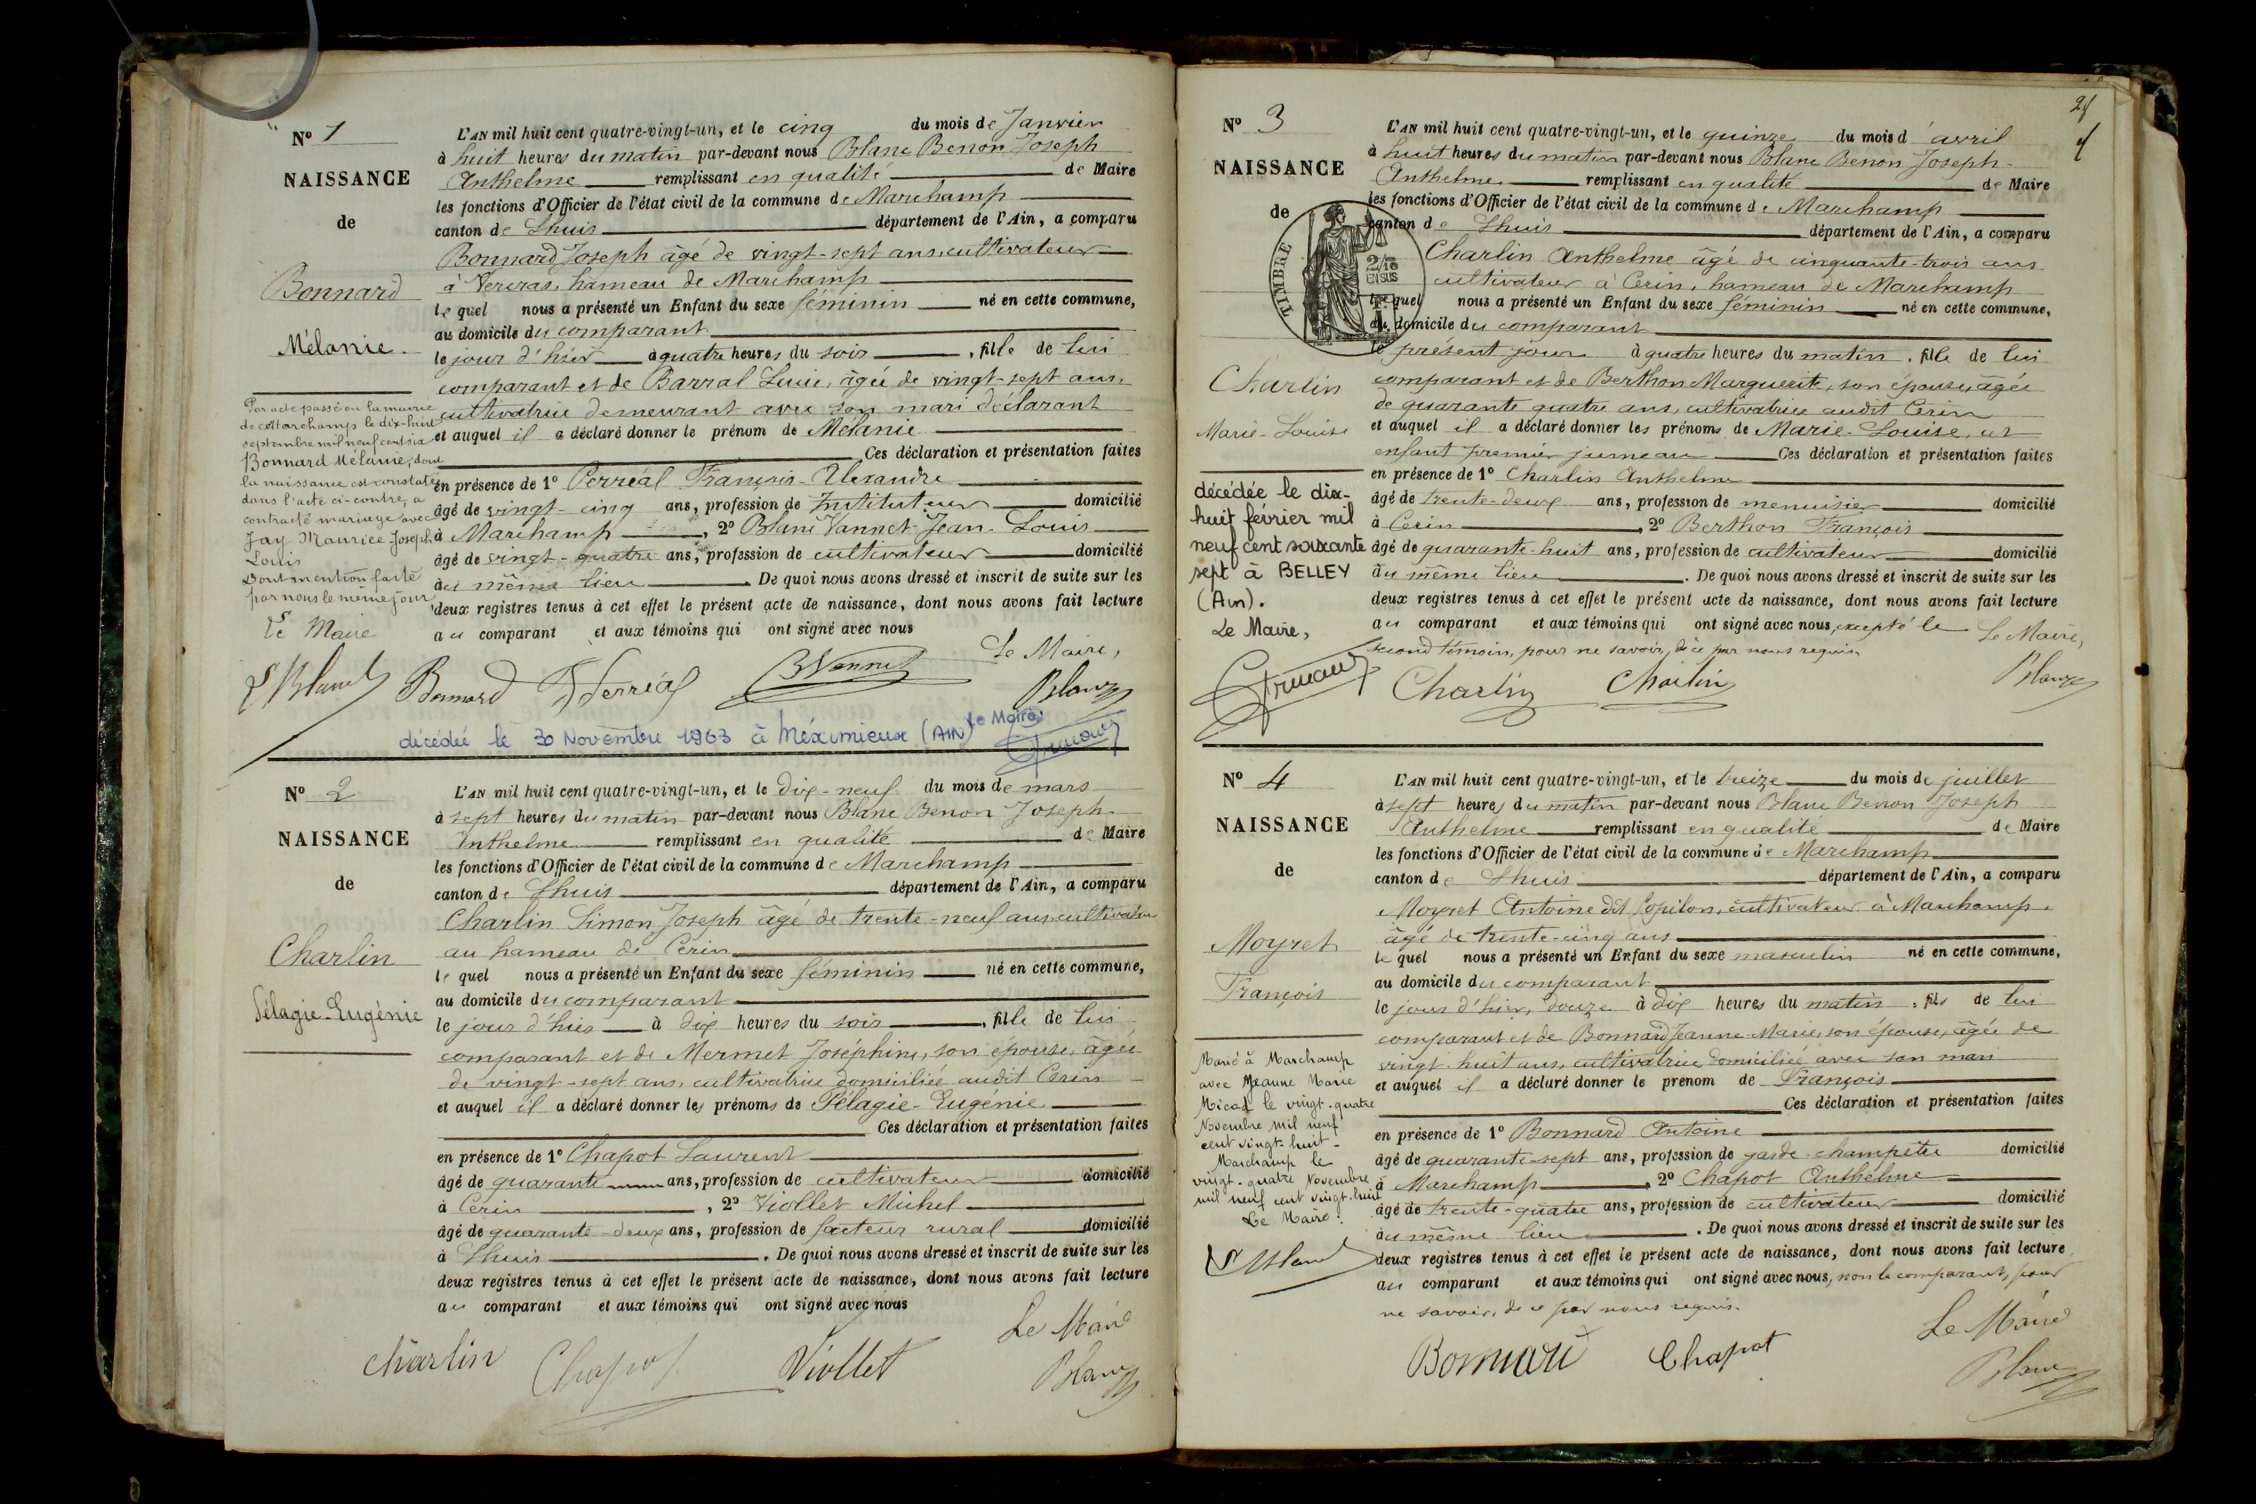 Nº 1
NAISSANCE
de
Bonnard
Mélanie.
Par acte passé en la mairie
de Marchamp le dix-huit
septembre mil neuf cent six
Bonnard Mélanie, dont
la naissance est constatée
dans l'acte ci-contre, a
contracté mariage avec
Jay Maurice Joseph
Louis
Dont mention faite
par nous le même jour
Le Maire
L'AN mil huit cent quatre-vingt-un, et le cinq du mois de Janvier
à huit heures du matin par-devant nous Blanc Benon Joseph
Anthelme remplissant en qualité de Maire
les fonctions d'Officier de l'état civil de la commune de Marchamp
canton de Lhuis département de l'Ain, a comparu
Bonnard Joseph âgé de vingt-sept ans, cultivateur
à Vercras, hameau de Marchamp
lequel nous a présenté un Enfant du sexe féminin né en cette commune,
au domicile du comparant
le jour d'hier à quatre heures du soir, fille de lui
comparant et de Barral Lucie, âgée de vingt-sept ans,
cultivatrice demeurant avec son mari déclarant
et auquel il a déclaré donner le prénom de Mélanie
Ces déclaration et présentation faites
en présence de 1º Perréal François-Alexandre
âgé de vingt-cinq ans, profession de Instituteur domicilié
à Marchamp, 2º Blanc Vannet Jean-Louis
âgé de vingt-quatre ans, profession de cultivateur domicilié
au même lieu. De quoi nous avons dressé et inscrit de suite sur les
deux registres tenus à cet effet le présent acte de naissance, dont nous avons fait lecture
au comparant et aux témoins qui ont signé avec nous
Le Maire,
Bonnard Perréal BVannet Blanc
décédée le 30 Novembre 1963 à Méximieux (AIN) le Maire,
Nº 2
NAISSANCE
de
Charlin
Pélagie-Eugénie
L'AN mil huit cent quatre-vingt-un, et le dix-neuf du mois de mars
à sept heures du matin par-devant nous Blanc Benon Joseph
Anthelme remplissant en qualité de Maire
les fonctions d'Officier de l'état civil de la commune de Marchamp
canton de Lhuis département de l'Ain, a comparu
Charlin Simon Joseph âgé de trente-neuf ans, cultivateur
au hameau de Cerin
lequel nous a présenté un Enfant du sexe féminin né en cette commune,
au domicile du comparant
le jour d'hier à dix heures du soir, fille de lui
comparant et de Mermet Joséphine, son épouse, âgée
de vingt-sept ans, cultivatrice domiciliée audit Cerin
et auquel il a déclaré donner les prénoms de Pélagie-Eugénie
Ces déclaration et présentation faites
en présence de 1º Chapot Laurent
âgé de quarante ans, profession de cultivateur domicilié
à Cerin, 2º Viollet Michel
âgé de quarante-deux ans, profession de facteur rural domicilié
à Lhuis. De quoi nous avons dressé et inscrit de suite sur les
deux registres tenus à cet effet le présent acte de naissance, dont nous avons fait lecture
au comparant et aux témoins qui ont signé avec nous
Le Maire
Charlin Chapot Viollet Blanc
Nº 3
NAISSANCE
de
TIMBRE
2/10
EN SUS
Charlin
Marie-Louise
décédée le dix-
huit février mil
neuf cent soixante
sept à BELLEY
(Ain).
Le Maire,
L'AN mil huit cent quatre-vingt-un, et le quinze du mois d'avril
à huit heures du matin par-devant nous Blanc Benon Joseph
Anthelme remplissant en qualité de Maire
les fonctions d'Officier de l'état civil de la commune de Marchamp
canton de Lhuis département de l'Ain, a comparu
Charlin Anthelme âgé de cinquante-trois ans
cultivateur à Cerin, hameau de Marchamp
lequel nous a présenté un Enfant du sexe féminin né en cette commune,
au domicile du comparant
le présent jour à quatre heures du matin, fille de lui
comparant et de Berthon Marguerite, son épouse, âgée
de quarante quatre ans, cultivatrice audit Cerin
et auquel il a déclaré donner les prénoms de Marie-Louise, cet
enfant premier jumeau Ces déclaration et présentation faites
en présence de 1º Charlin Anthelme
âgé de trente-deux ans, profession de menuisier domicilié
à Cerin, 2º Berthon François
âgé de quarante-huit ans, profession de cultivateur domicilié
au même lieu. De quoi nous avons dressé et inscrit de suite sur les
deux registres tenus à cet effet le présent acte de naissance, dont nous avons fait lecture
au comparant et aux témoins qui ont signé avec nous, excepté le
second témoin, pour ne savoir, de ce par nous requis.
Le Maire,
Charlin Charlin Blanc
Nº 4
NAISSANCE
de
Moyret
François
Marié à Marchamp
avec Jeanne Marie
le vingt-quatre
Novembre mil neuf
cent vingt-huit-
Marchamp le
vingt-quatre Novembre
mil neuf cent vingt-huit
Le Maire:
L'AN mil huit cent quatre-vingt-un, et le treize du mois de juillet
à sept heures du matin par-devant nous Blanc Benon Joseph
Anthelme remplissant en qualité de Maire
les fonctions d'Officier de l'état civil de la commune de Marchamp
canton de Lhuis département de l'Ain, a comparu
Moyret Antoine dit Copilon, cultivateur à Marchamp,
âgé de trente-cinq ans
lequel nous a présenté un Enfant du sexe masculin né en cette commune,
au domicile du comparant
le jour d'hier, douze à dix heures du matin, fils de lui
comparant et de Bonnard Jeanne-Marie, son épouse, âgée de
vingt-huit ans, cultivatrice domiciliée avec son mari
et auquel il a déclaré donner le prénom de François
Ces déclaration et présentation faites
en présence de 1º Bonnard Antoine
âgé de quarante-sept ans, profession de garde-champêtre domicilié
à Marchamp, 2º Chapot Anthelme
âgé de trente-quatre ans, profession de cultivateur domicilié
au même lieu. De quoi nous avons dressé et inscrit de suite sur les
deux registres tenus à cet effet le présent acte de naissance, dont nous avons fait lecture
au comparant et aux témoins qui ont signé avec nous, non le comparant, pour
ne savoir, de ce par nous requis.
Le Maire
Bonnard Chapot Blanc